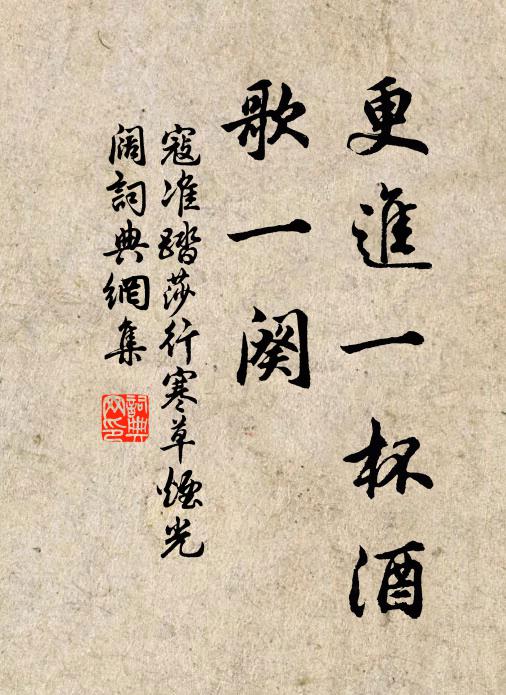 更進一杯酒
歌一闋
寇准踏莎行寒草煙光
阔詞典網集
詞典网印